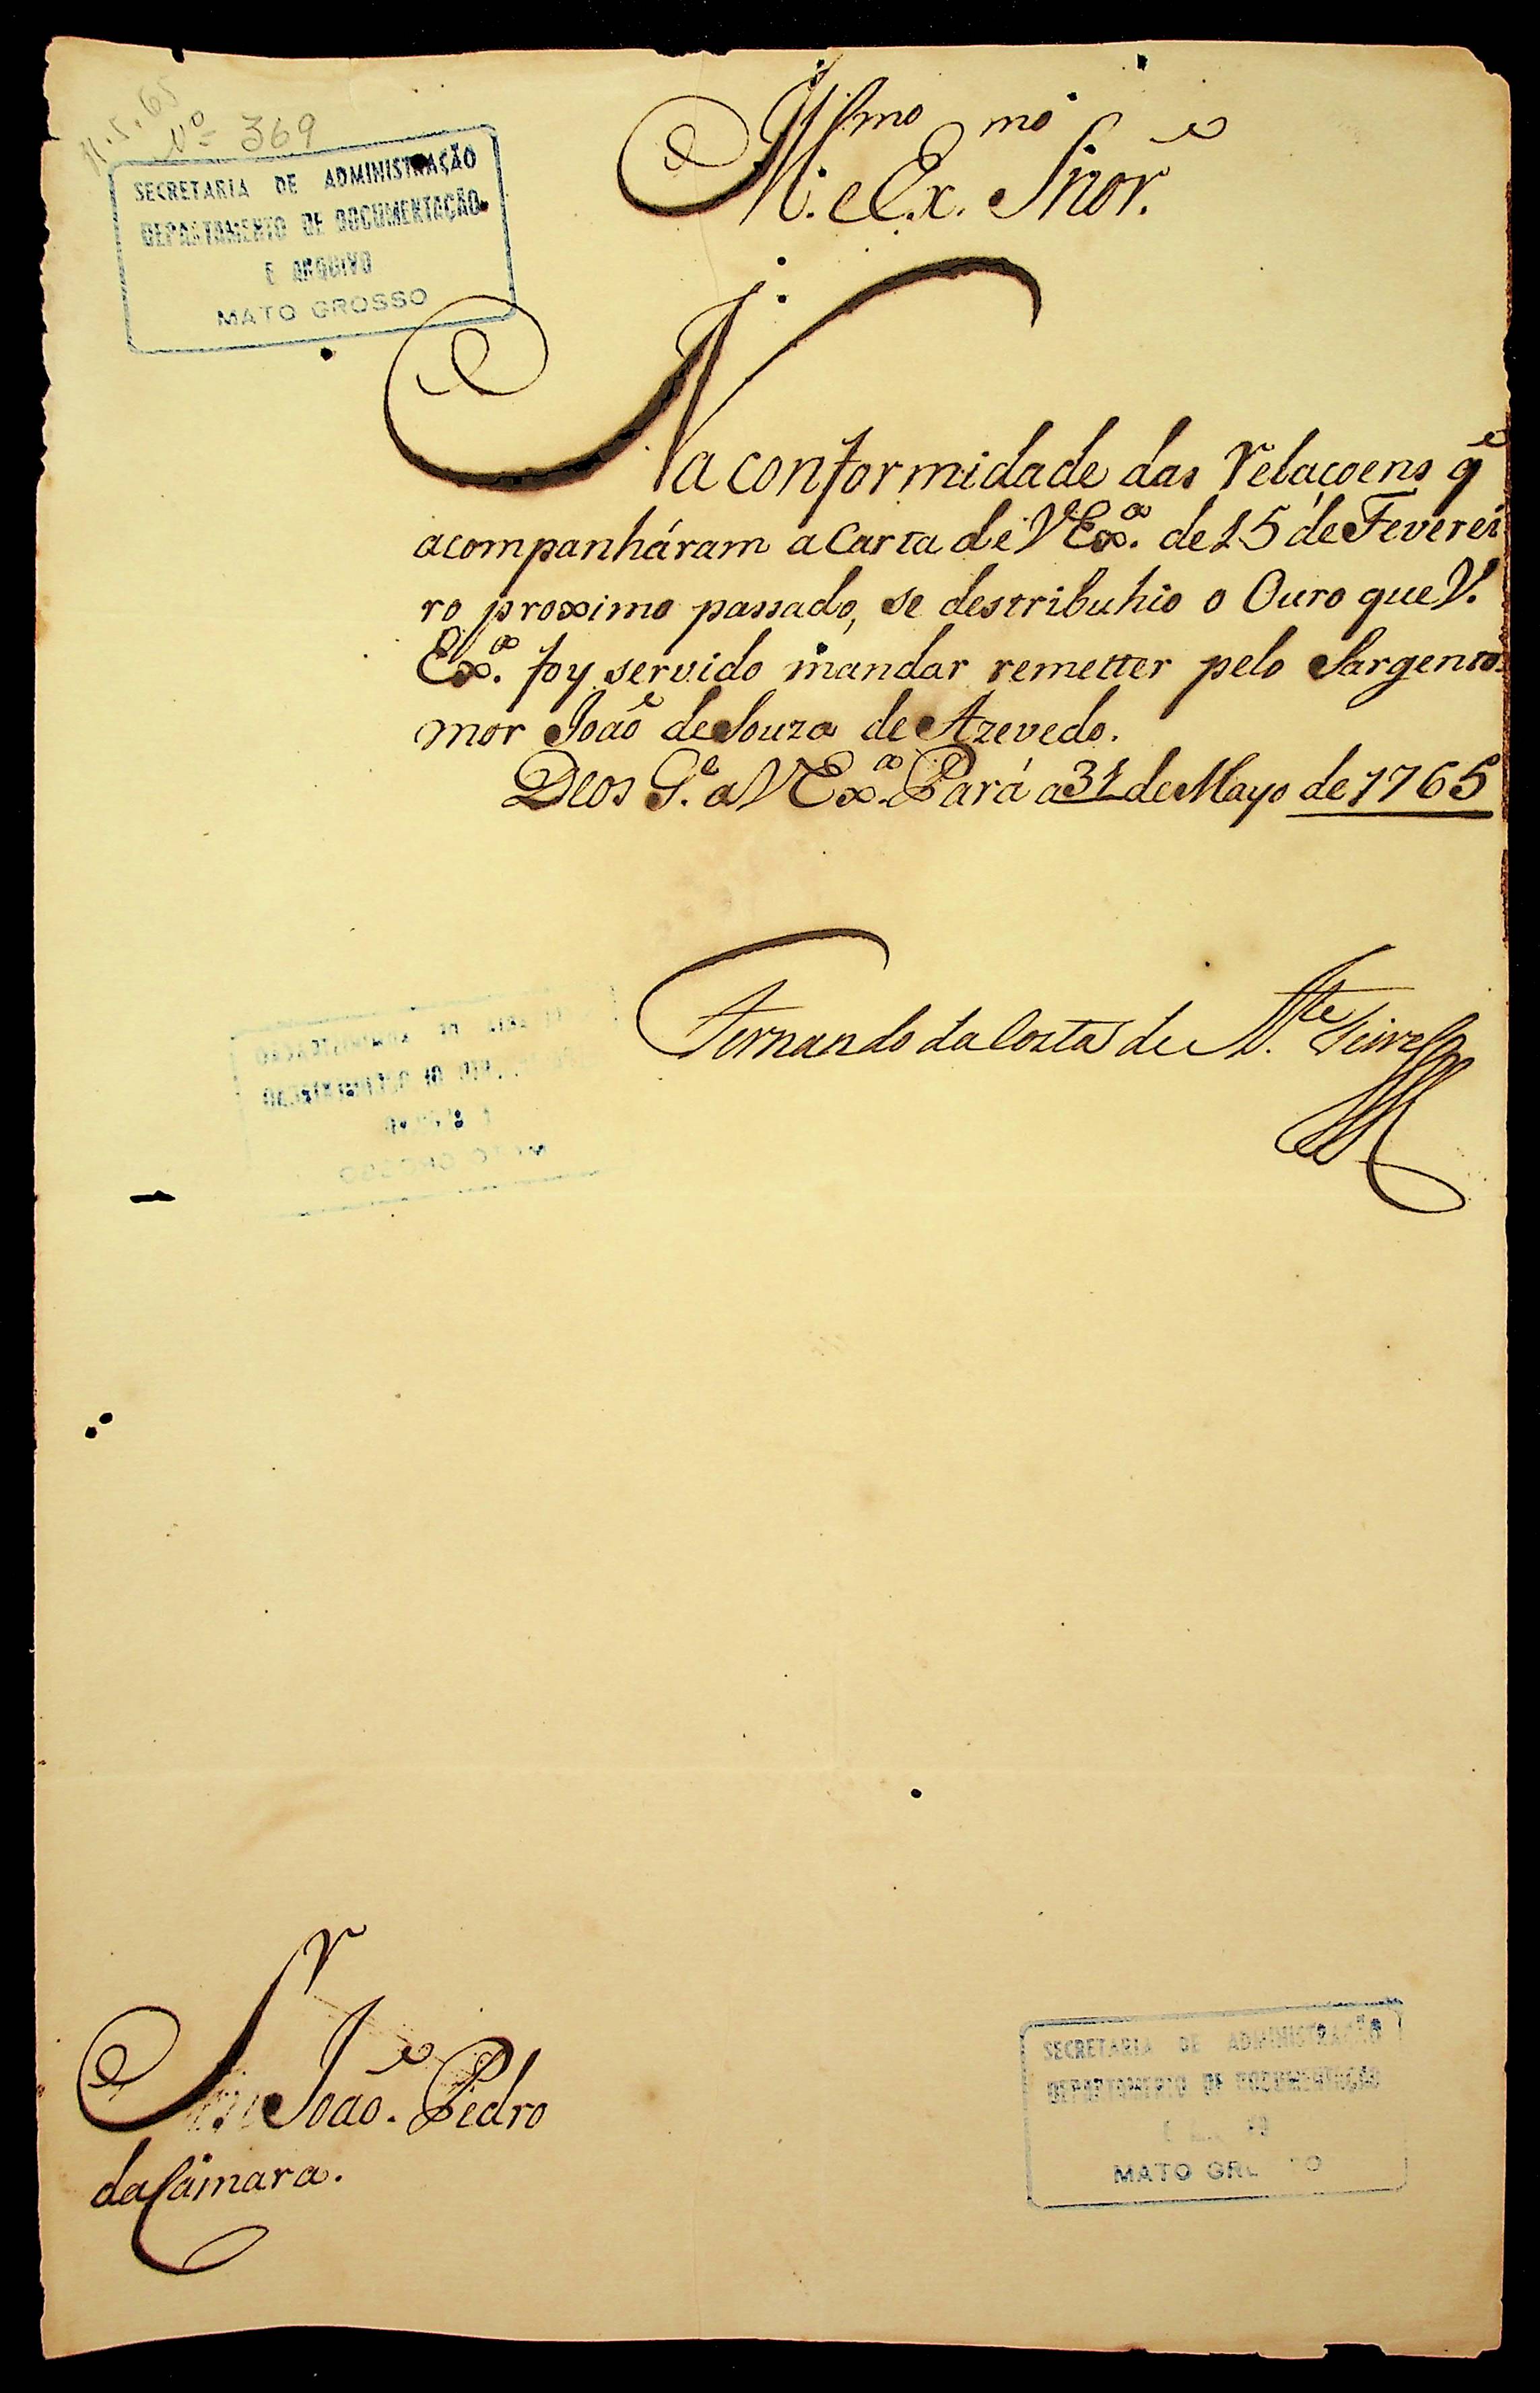 11.5.65
Nº 369
SECRETARIA DE ADMINISTRAÇÃO
DEPARTAMENTO DE DOCUMENTAÇÃO
E ARQUIVO
MATO GROSSO
Illmo. e Exmo. Snor.
Na conformidade das relaçoens q̃
acompanháram a Carta de V Exª. de 15 de Feverei
ro proximo passado, se destribuhio o Ouro que V.
Exª. foy servido mandar remetter pelo Sargento
mor João de Souza de Azevedo.
Deos G.e a V Exª. Pará a 31 de Mayo de 1765
Fernando da Costa de Atte. Teive
Snr João Pedro
da Câmara.
SECRETARIA DE ADMINISTRAÇÃO
DEPARTAMENTO DE DOCUMENTAÇÃO
MATO GROSSO